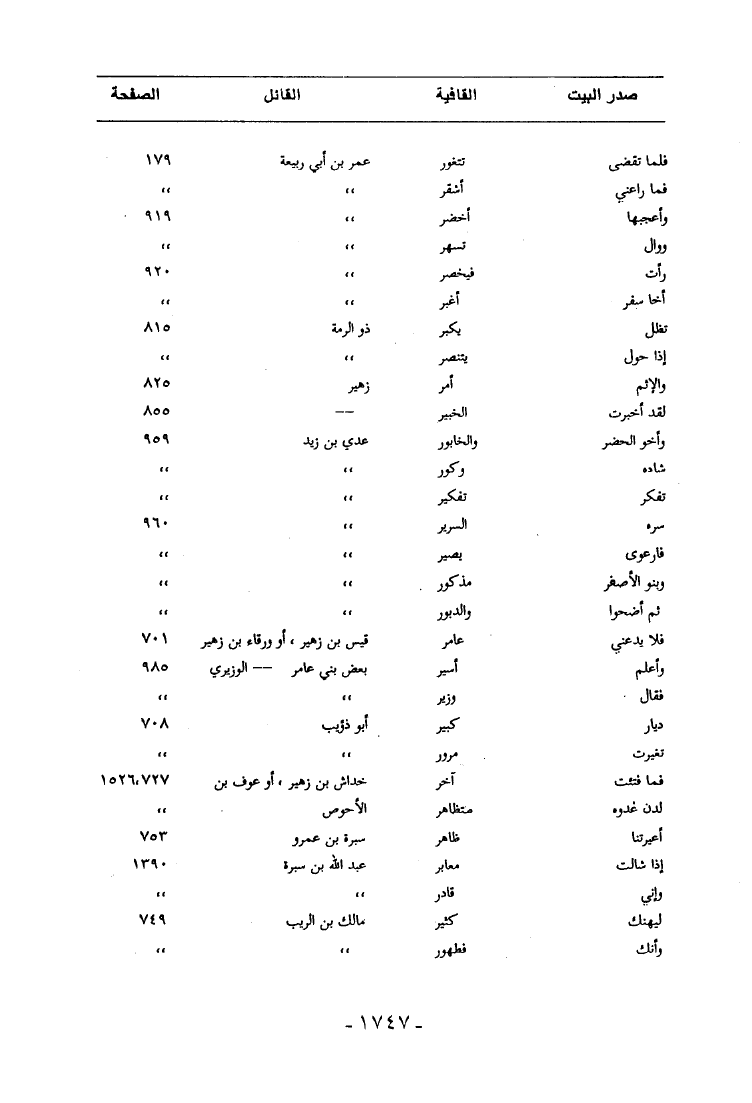 صدر البيت القافية القائل الصفحة
فلما تقضى تتغور عمر بن أبي ربيعة ١٧٩
فما راعني أشقر ،، ،،
وأعجبها أخضر ،، ٩١٩
ووال تسهر ،، ،،
رأت فيخصر ،، ٩٢٠
أخا سفر أغبر ،، ،،
تظل يكبر ذو الرمة ٨١٥
إذا حول يتنصر ،، ،،
والإثم أمر زهير ٨٢٥
لقد أخبرت الخبير —— ٨٥٥
وأخو الحضر والخابور عدي بن زيد ٩٥٩
شاده وكور ،، ،،
تفكر تفكير ،، ،،
سره السرير ،، ٩٦٠
فارعوى يصير ،، ،،
وبنو الأصفر مذكور ،، ،،
ثم أضحوا والدبور ،، ،،
فلا يدعني عامر قيس بن زهير ، أو ورقاء بن زهير ٧٠١
وأعلم أسير بعض بني عامر —— الوزيري ٩٨٥
فقال وزير ،، ،،
ديار كبير أبو ذؤيب ٧٠٨
تغيرت مرور ،، ،،
فما فتئت آخر خداش بن زهير ، أو عوف بن ١٥٢٦،٧٢٧
لدن غدوه متظاهر الأحوص ،،
أعيرتنا ظاهر سبرة بن عمرو ٧٥٣
إذا شالت معابر عبد الله بن سبرة ١٣٩٠
وإني قادر ،، ،،
ليهنك كثير مالك بن الريب ٧٤٩
وأنك فطهور ،، ،،
- ١٧٤٧ -